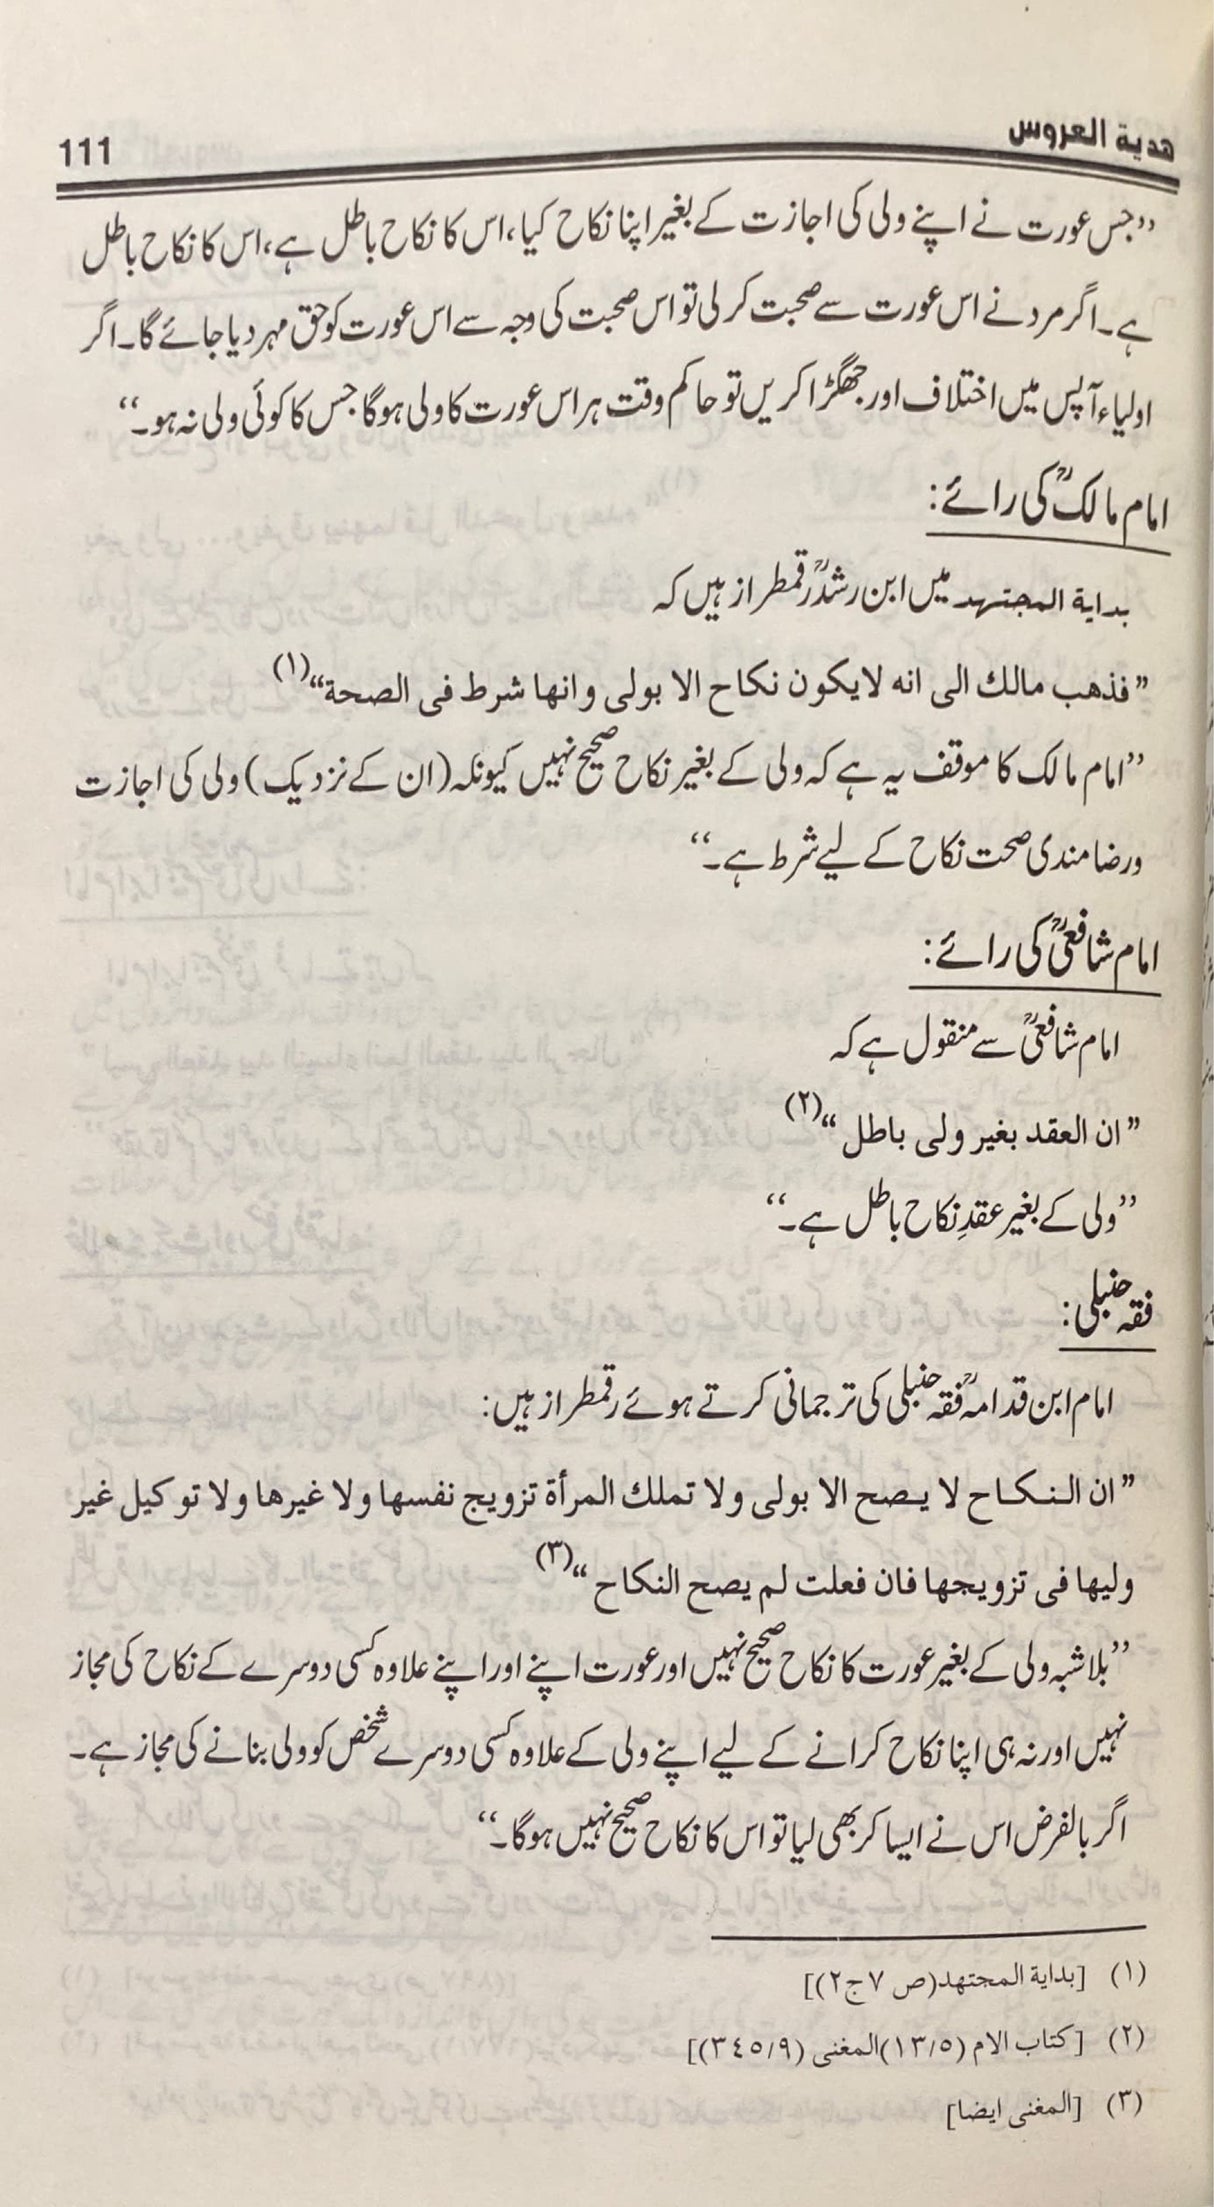 هدية العروس
111
”جس عورت نے اپنے ولی کی اجازت کے بغیر اپنا نکاح کیا، اس کا نکاح باطل ہے، اس کا نکاح باطل
ہے۔ اگر مرد نے اس عورت سے صحبت کر لی تو اس صحبت کی وجہ سے اس عورت کو حق مہر دیا جائے گا۔ اگر
اولیاء آپس میں اختلاف اور جھگڑا کریں تو حاکم وقت ہر اس عورت کا ولی ہوگا جس کا کوئی ولی نہ ہو۔“
امام مالکؒ کی رائے:
بداية المجتهد میں ابن رشدؒ رقمطراز ہیں کہ
”فذهب مالك الى انه لايكون نكاح الا بولى وانها شرط فى الصحة“(١)
”امام مالک کا موقف یہ ہے کہ ولی کے بغیر نکاح صحیح نہیں کیونکہ (ان کے نزدیک) ولی کی اجازت
ورضامندی صحت نکاح کے لیے شرط ہے۔“
امام شافعیؒ کی رائے:
امام شافعیؒ سے منقول ہے کہ
”ان العقد بغير ولى باطل“(٢)
”ولی کے بغیر عقدِ نکاح باطل ہے۔“
فقہ حنبلی:
امام ابن قدامہؒ فقہ حنبلی کی ترجمانی کرتے ہوئے رقمطراز ہیں:
”ان النكاح لا يصح الا بولى ولا تملك المرأة تزويج نفسها ولا غيرها ولا توكيل غير
وليها فى تزويجها فان فعلت لم يصح النكاح“(٣)
”بلاشبہ ولی کے بغیر عورت کا نکاح صحیح نہیں اور عورت اپنے اور اپنے علاوہ کسی دوسرے کے نکاح کی مجاز
نہیں اور نہ ہی اپنا نکاح کرانے کے لیے اپنے ولی کے علاوہ کسی دوسرے شخص کو ولی بنانے کی مجاز ہے۔
اگر بالفرض اس نے ایسا کر بھی لیا تو اس کا نکاح صحیح نہیں ہوگا۔“
(١) [بداية المجتهد(ص ٧ ج٢)]
(٢) [كتاب الام (١٣/٥)المغنى (٣٤٥/٩)]
(٣) [المغنى ايضا]